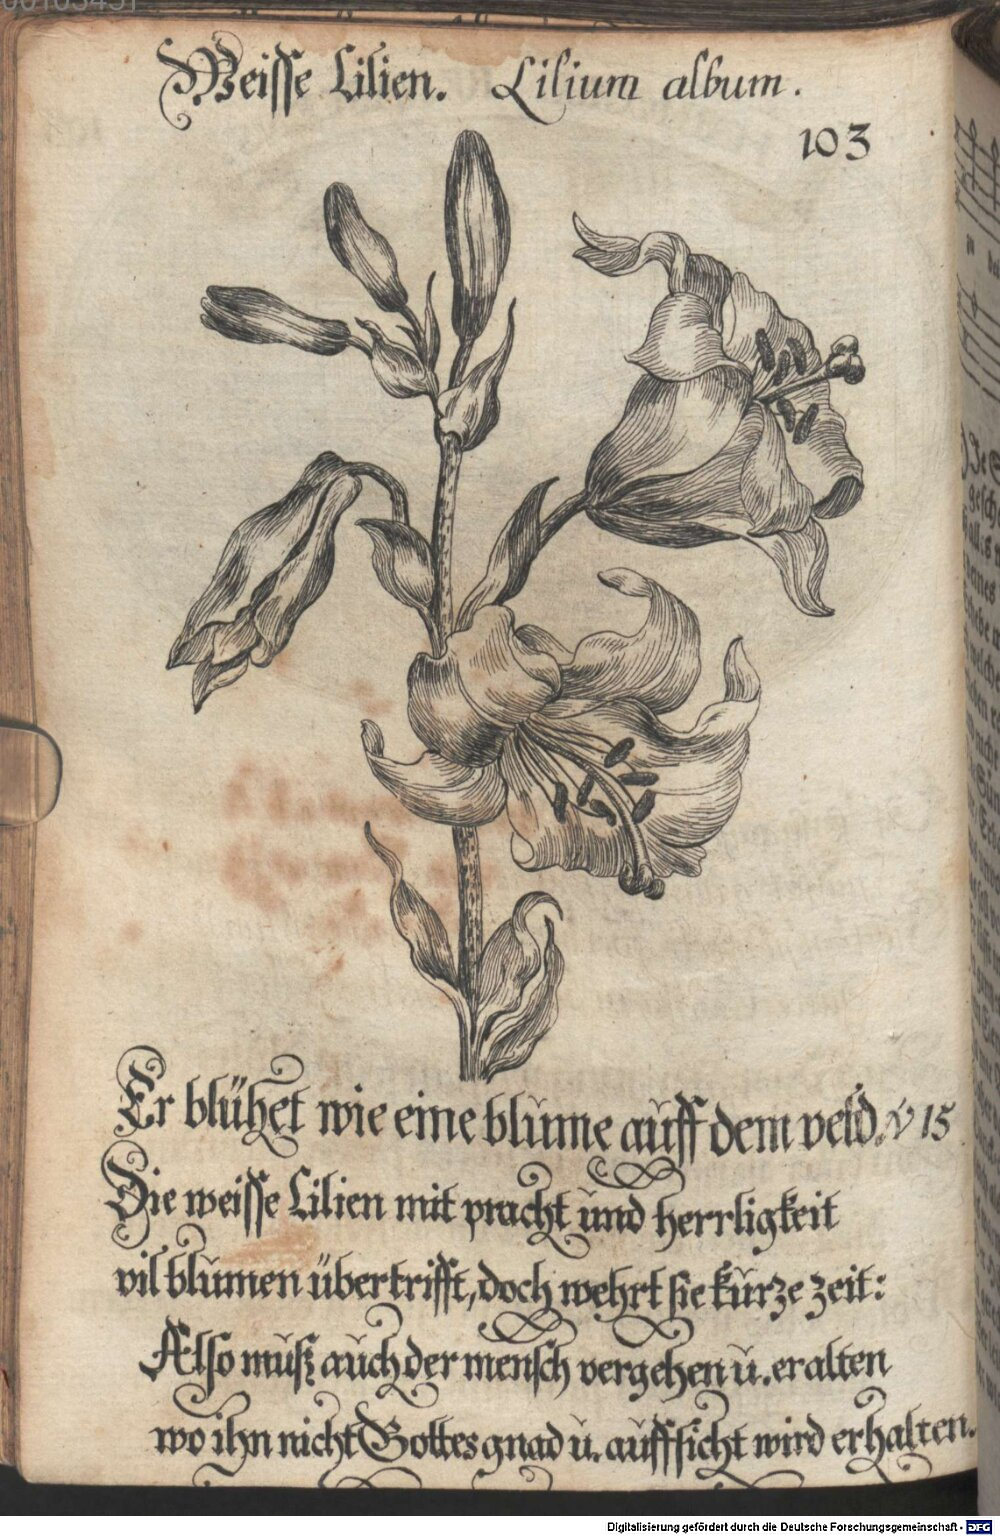 Weisse Lilien. Lilium album.
103
Er blühet wie eine blume auff dem veld. v 15
Die weisse Lilien mit pracht und herrligkeit
vil blumen übertrifft, doch wehrt sie kurze zeit:
Also muß auch der mensch vergehen u. eralten
wo ihn nicht Gottes gnad u. auffsicht wird erhalten.
Digitalisierung gefördert durch die Deutsche Forschungsgemeinschaft - DFG